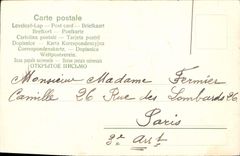 Carte postale
Levelezö-Lap — Post-card — Briefkaart
Brefkort — Postkarte
Cartolina postale — Tarjeta postal
Dopisnice — Karta Korespondencyjna
Correspondenzkarte — Dopisnica
Weltpostverein.
ОТКРЫТОЕ ПИСЬМО
Monsieur Madame Fermier
Camille 26 Rue des Lombards 26
Paris
3e Art